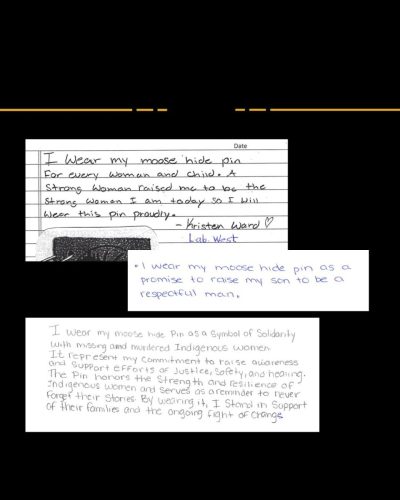 Date
I wear my moose hide pin
For every woman and child. A
Strong woman raised me to be the
Strong woman I am today so I will
wear this pin proudly.
- Kristen Ward ♡
Lab West
• I wear my moose hide pin as a
promise to raise my son to be a
respectful man.
I wear my moose hide Pin as a Symbol of Solidarity
with missing and murdered Indigenous women.
It represent my commitment to raise awareness
and support efforts of Justice, Safety, and healing.
The Pin honors the Strength and resilience of
Indigenous women and serves as a reminder to never
forget their Stories. By wearing it, I Stand in Support
of their families and the ongoing fight of change.